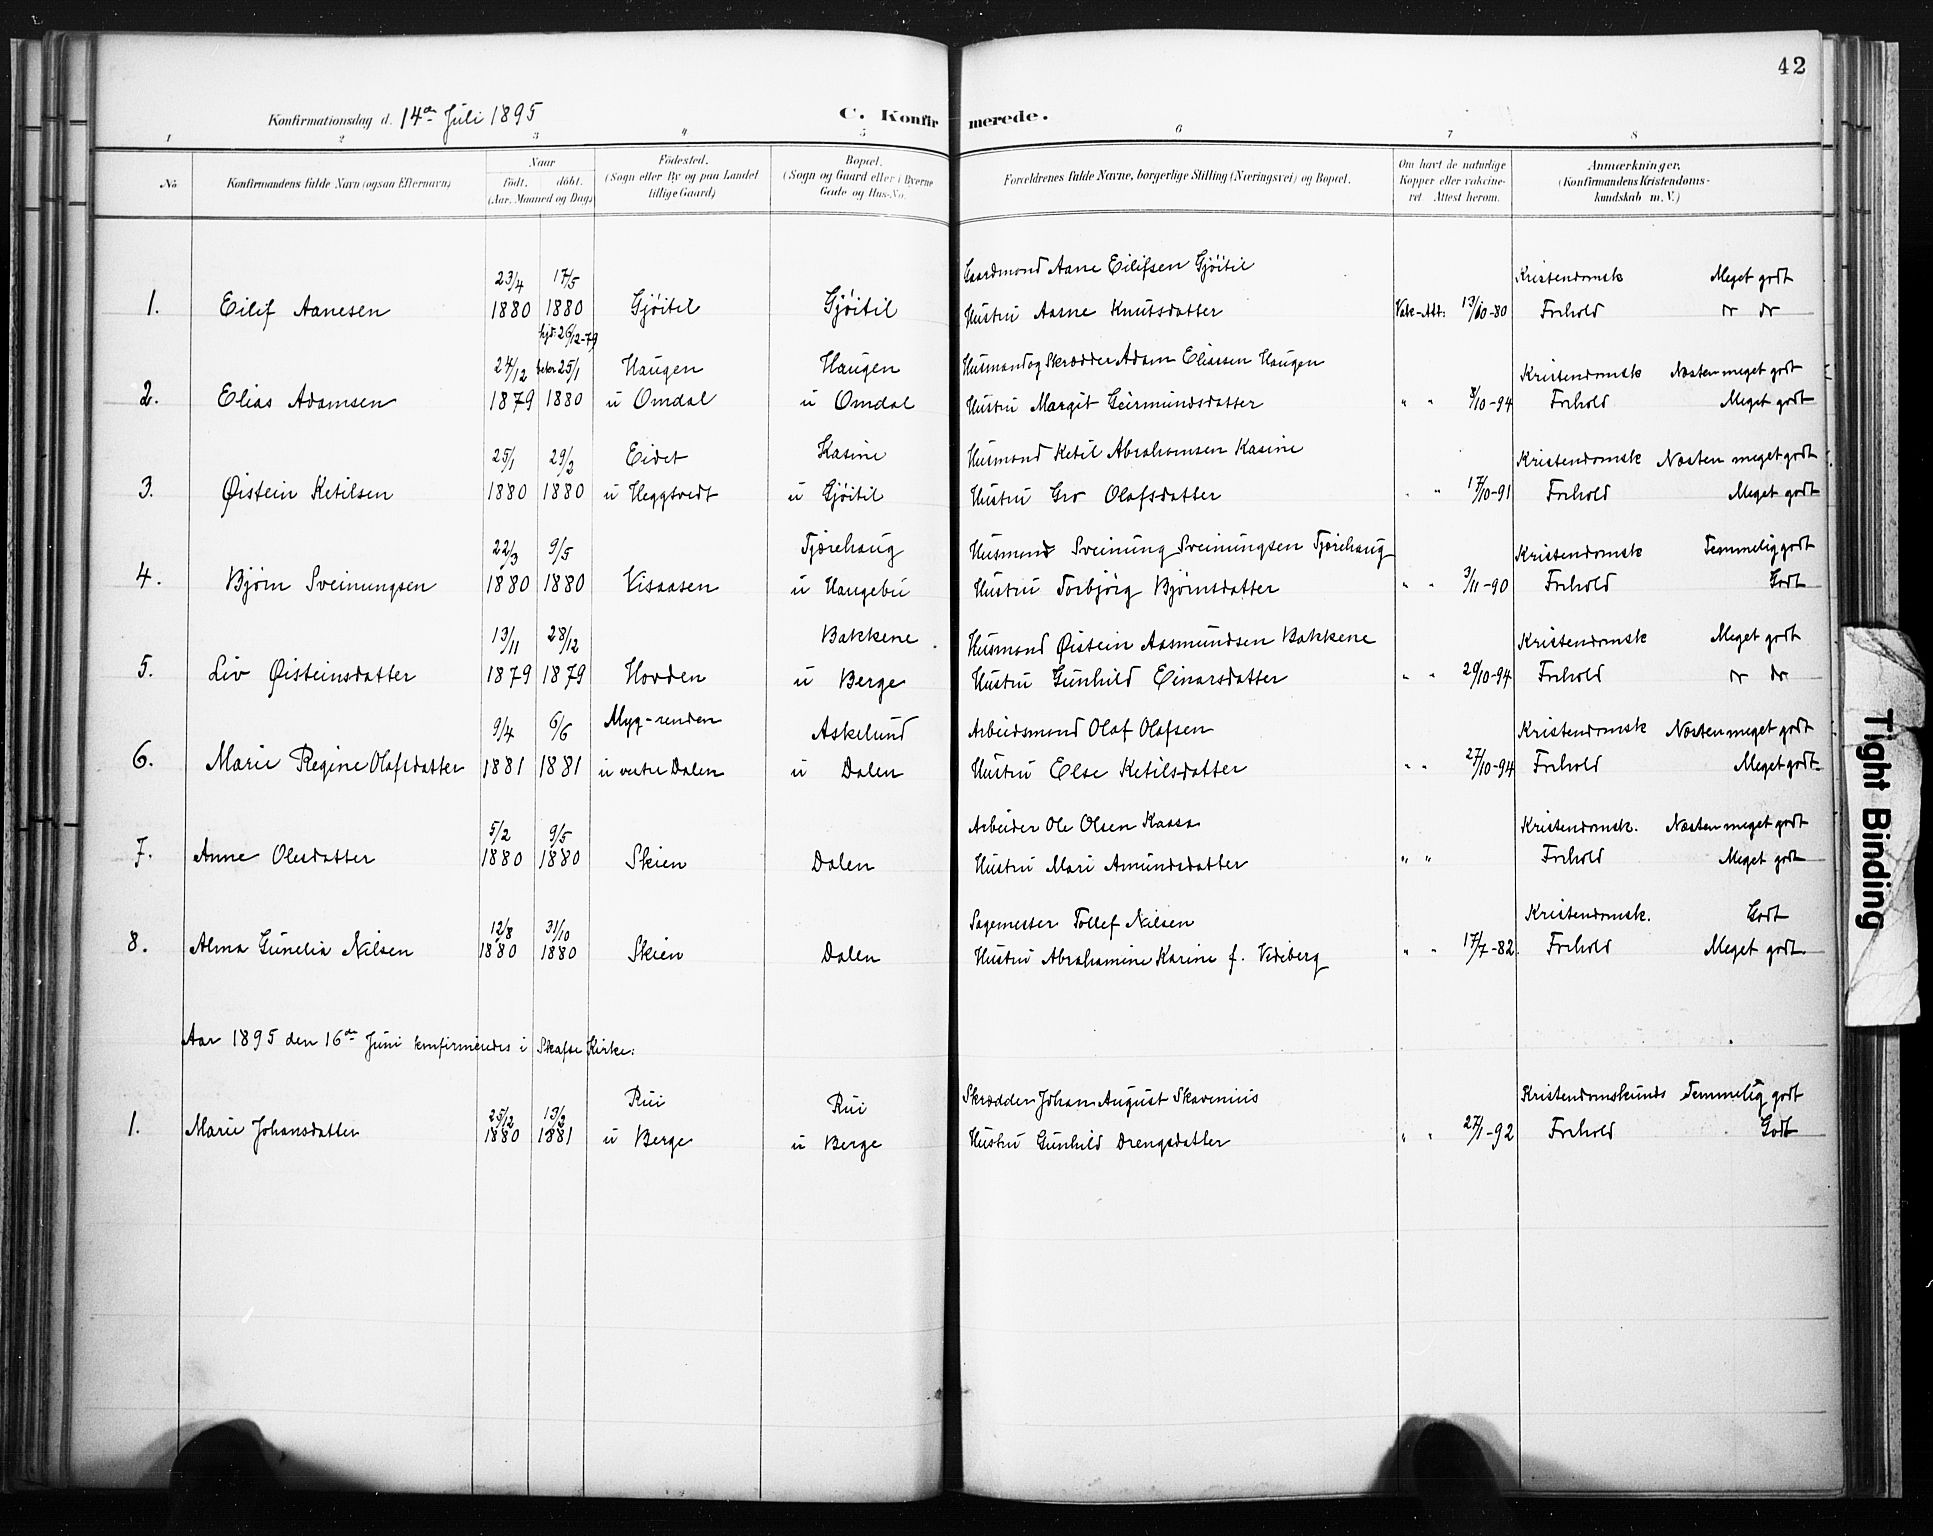 42
Konfirmationsdag d. 14de Juli 1895
C. Konfirmerede.
1 2 3 4 5 6 7 8
No
Konfirmandens fulde Navn (ogsaa Efternavn)
Naar
født. døbt.
(Aar, Maaned og Dag)
Fødested.
(Sogn eller By og paa Landet
tillige Gaard)
Bopæl.
(Sogn og Gaard eller i Byerne
Gade og Hus-No.
Forældrenes fulde Navne, borgerlige Stilling (Næringsvei) og Bopæl.
Om havt de naturlige
Kopper eller vakcine-
ret Attest herom.
Anmærkninger.
(Konfirmandens Kristendoms-
kundskab m. V.)
23/4 17/5 Gaardmand Aane Eilifsen Gjöitil Kristendomsk Meget godt
1. Eilif Aanesen 1880 1880 Gjöitil Gjöitil Hustru Aasne Knutsdatter Vak-Att: 13/10-80 Forhold do do
hjd: 26/12-79
24/12 25/1 Haugen Haugen Husmand og Skrædder Adam Eliassen Haugen Kristendomsk Næsten meget godt
2. Elias Adamsen 1879 1880 u Omdal u Omdal Hustru Margit Geirmundsdatter " " 8/10-94 Forhold Meget godt
25/1 29/2 Eidet Kasine Husmand Ketil Abrahamsen Kasine Kristendomsk Næsten meget godt
3. Øistein Ketilsen 1880 1880 u Heggtvedt u Gjöitil Hustru Gro Olafsdatter " " 17/10-91 Forhold Meget godt
22/3 9/5 Tjørehaug Husmand Sveinung Sveinungsen Tjørehaug Kristendomsk Temmelig godt
4. Bjørn Sveinungsen 1880 1880 Visaasen u Haugebu Hustru Torbjörg Bjørnsdatter " " 3/11-90 Forhold Godt
13/11 28/12 Bakkene Husmand Øistein Aasmundsen Bakkene Kristendomsk Meget godt
5. Liv Øisteinsdatter 1879 1879 Hovden u Berge Hustru Gunhild Einarsdatter " " 29/10-94 Forhold do do
9/4 6/6 Myg-renden Askelund Arbeidsmand Olaf Olafsen Kristendomsk Næsten meget godt
6. Marie Regine Olafsdatter 1881 1881 u vestre Dalen u Dalen Hustru Else Ketilsdatter " " 27/10-94 Forhold Meget godt
5/2 9/5 Arbeider Ole Olsen Kaasa Kristendomsk. Næsten meget godt
7. Anne Olesdatter 1880 1880 Skien Dalen Hustru Mari Amundsdatter " " Forhold Meget godt
12/8 31/10 Sagmester Tollef Nilsen Kristendomsk. Godt
8. Alma Gunelia Nilsen 1880 1880 Skien Dalen Hustru Abrahamine Karine f. Videberg " " 17/7-82. Forhold Meget godt.
Aar 1895 den 16de Juni konfirmeredes i Skafse Kirke:
25/12 13/2 Rui Rui Skrædder Johan August Skavenius Kristendomskunds Temmelig godt
1. Marie Johansdatter 1880 1881 u Berge u Berge Hustru Gunhild Drengsdatter " " 27/1-92 Forhold Godt
Tight Binding